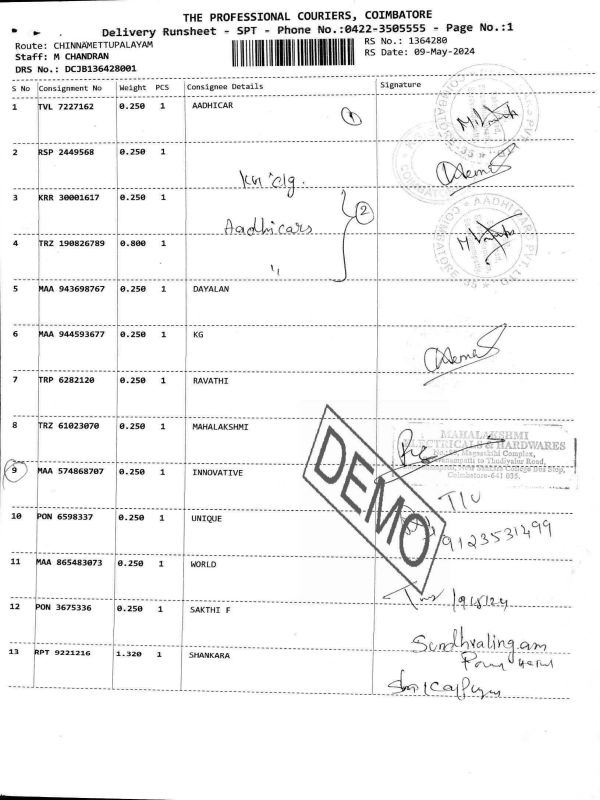 THE PROFESSIONAL COURIERS, COIMBATORE
Delivery Runsheet - SPT - Phone No.:0422-3505555 - Page No.:1
Route: CHINNAMETTUPALAYAM
RS No.: 1364280
Staff: M CHANDRAN
RS Date: 09-May-2024
DRS No.: DCJB136428001
S No Consignment No Weight PCS Consignee Details Signature
1 TVL 7227162 0.250 1 AADHICAR
1
2 RSP 2449568 0.250 1
KG clg.
3 KRR 30001617 0.250 1
2
Aadhicars
4 TRZ 190826789 0.800 1
"
AADHICAR PVT. LTD
COIMBATORE-35
5 MAA 943698767 0.250 1 DAYALAN
6 MAA 944593677 0.250 1 KG
7 TRP 6282120 0.250 1 RAVATHI
8 TRZ 61023070 0.250 1 MAHALAKSHMI
MAHALAKSHMI
ELECTRICALS & HARDWARES
Complex,
to Thudiyalur Road,
College Bus Stop,
Coimbatore-641 035.
9 MAA 574868707 0.250 1 INNOVATIVE
DEMO
10 PON 6598337 0.250 1 UNIQUE
9123531499
11 MAA 865483073 0.250 1 WORLD
12 PON 3675336 0.250 1 SAKTHI F
13 RPT 9221216 1.320 1 SHANKARA